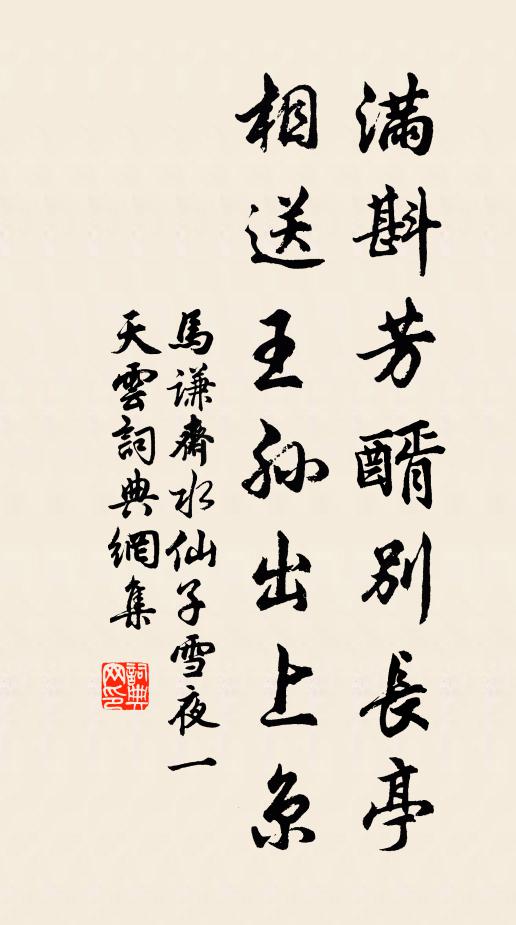 滿斟芳醑別長亭
相送王孫出上京
馬謙齋水仙子雪夜一
天雲詞典網集
詞典
网印